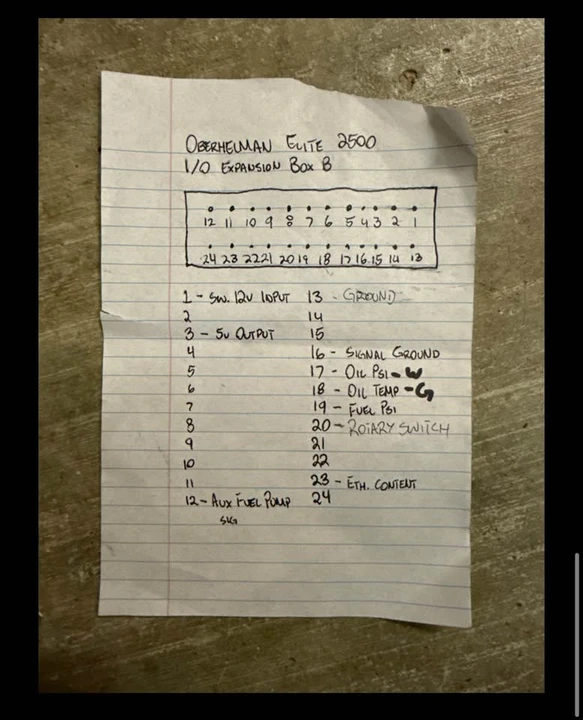 OBERHELMAN ELITE 2500
I/O EXPANSION BOX B
12 11 10 9 8 7 6 5 4 3 2 1
24 23 22 21 20 19 18 17 16 15 14 13
1 - SW. 12V INPUT 13 - GROUND
2 14
3 - 5V OUTPUT 15
4 16 - SIGNAL GROUND
5 17 - OIL PSI - W
6 18 - OIL TEMP - G
7 19 - FUEL PSI
8 20 - ROTARY SWITCH
9 21
10 22
11 23 - ETH. CONTENT
12 - AUX FUEL PUMP 24
SIG